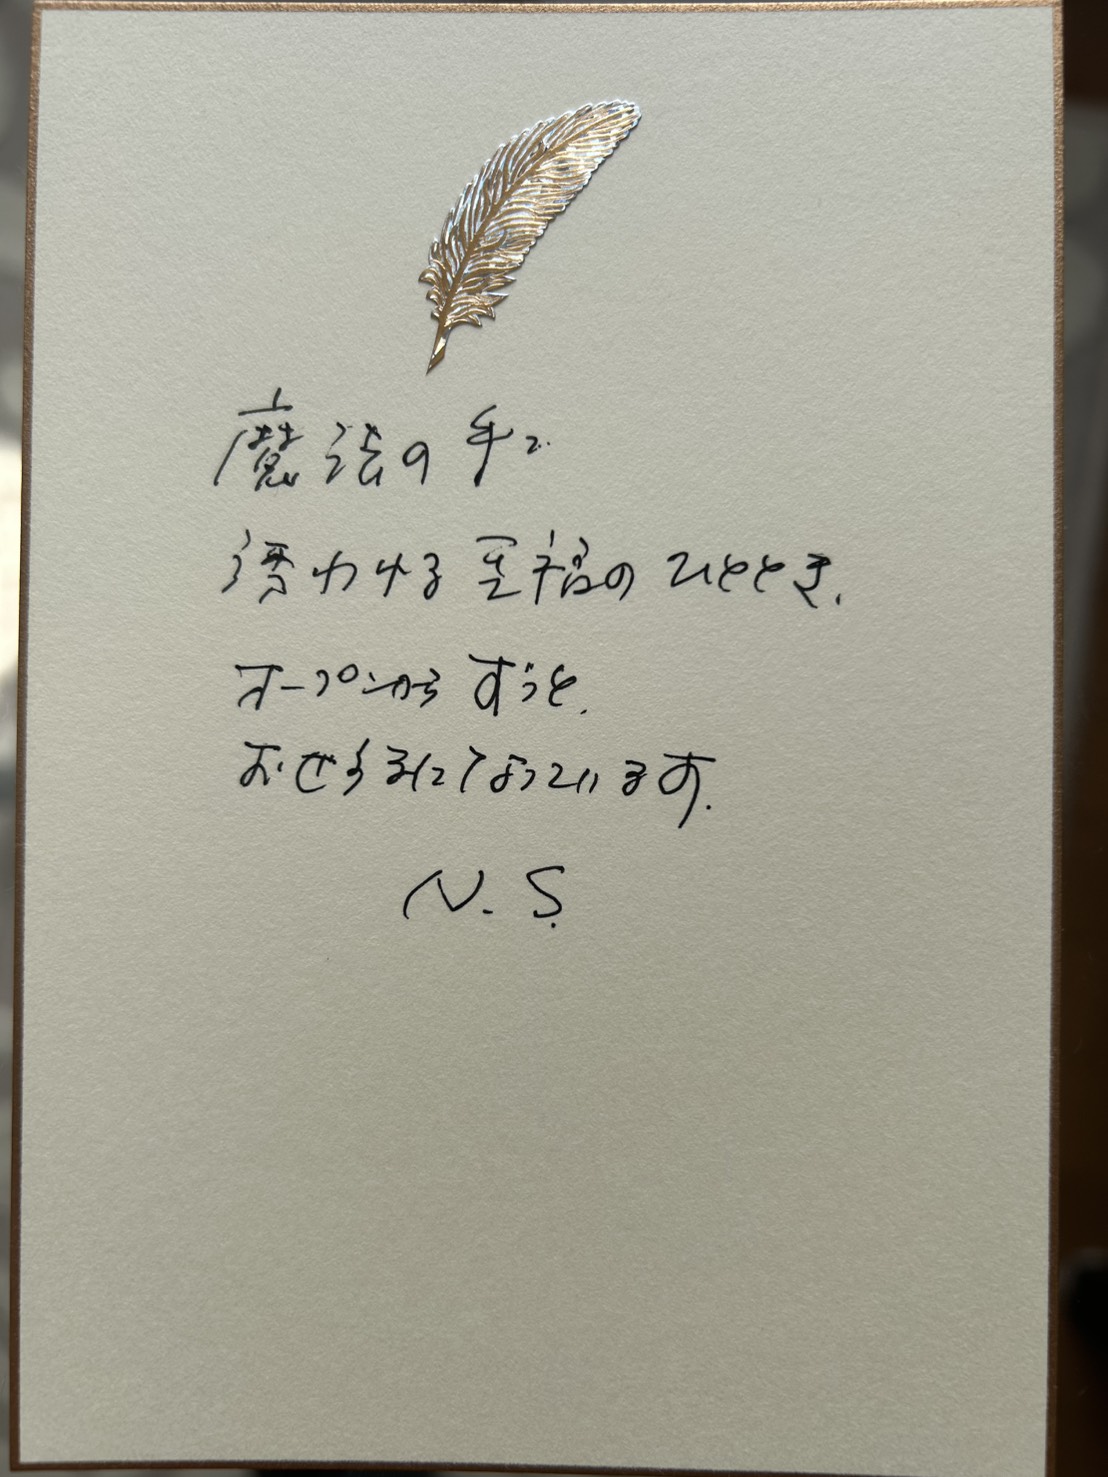 魔法の手で
誘われる至福のひととき.
オープンから ずっと.
おせわになっています.
N. S.